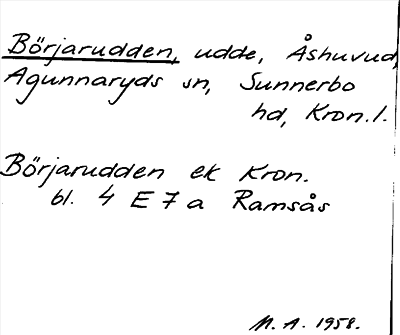 Börjarudden, udde, Åshuvud,
Agunnaryds sn, Sunnerbo
hd, Kron. l.
Börjarudden ek Kron.
bl. 4 E 7 a Ramsås
M. A. 1958.